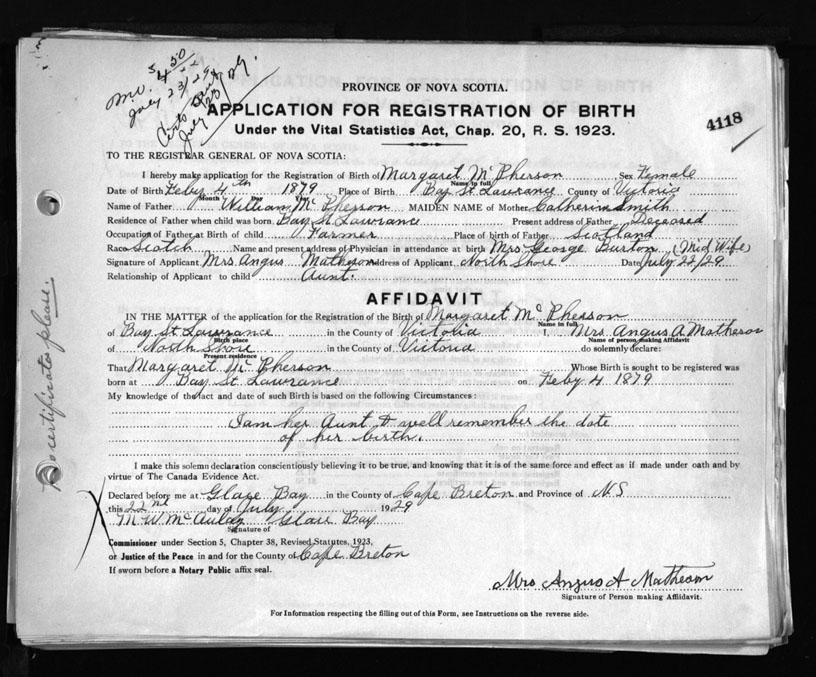 M.O. 5450
July 23/29
July 23
PROVINCE OF NOVA SCOTIA.
APPLICATION FOR REGISTRATION OF BIRTH
4118
Under the Vital Statistics Act, Chap. 20, R. S. 1923.
TO THE REGISTRAR GENERAL OF NOVA SCOTIA:
I hereby make application for the Registration of Birth of Margaret McPherson Sex Female
Name in full
Date of Birth Feby 4th 1879 Place of Birth Bay St. Lawrance County of Victoria
Month Day Year
Name of Father William McPherson MAIDEN NAME of Mother Catherine Smith
Residence of Father when child was born Bay St Lawrance Present address of Father Deceased
Occupation of Father at Birth of child Farmer Place of birth of Father Scotland
Race Scotch Name and present address of Physician in attendance at birth Mrs George Burton (Mid Wife)
Signature of Applicant Mrs Angus Matheson Address of Applicant North Shore Date July 22/29
Relationship of Applicant to child Aunt.
AFFIDAVIT
IN THE MATTER of the application for the Registration of the Birth of Margaret McPherson
Name in full
of Bay St Lawrance in the County of Victoria I, Mrs Angus A Matheson
Birth place Name of person making Affidavit
of North Shore in the County of Victoria do solemnly declare:
Present residence
That Margaret McPherson Whose Birth is sought to be registered was
born at Bay St. Lawrance on Feby 4 1879
My knowledge of the fact and date of such Birth is based on the following Circumstances:
I am her Aunt & well remember the date
of her birth.
I make this solemn declaration conscientiously believing it to be true, and knowing that it is of the same force and effect as if made under oath and by
virtue of The Canada Evidence Act.
Declared before me at Glace Bay in the County of Cape Breton and Province of N.S
this 22nd day of July 1929
M W McAulay Glace Bay
Signature of
Commissioner under Section 5, Chapter 38, Revised Statutes, 1923,
or Justice of the Peace in and for the County of Cape Breton
If sworn before a Notary Public affix seal.
Mrs Angus A Matheson
Signature of Person making Affidavit.
For Information respecting the filling out of this Form, see Instructions on the reverse side.
certificates please.